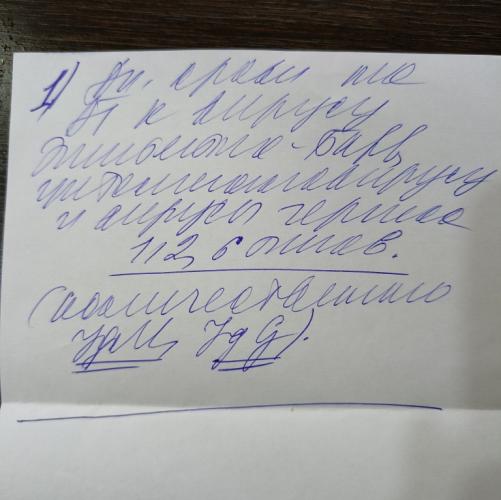 1) Ан. крови на
Ат к вирусу
Эпштейна-Барр,
цитомегаловирусу
и вирусы герпеса
1,2, 6 типов.
(количественно
IgM, IgG).